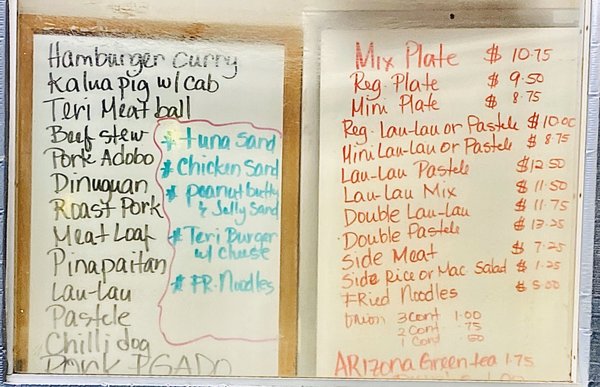 Hamburger Curry
Kalua pig w/ cab
Teri Meat ball
Beef stew
Pork Adobo
Dinuguan
Roast Pork
Meat Loaf
Pinapaitan
Lau-Lau
Pastele
Chilli dog
Pork PGADO
# tuna Sand
# Chicken Sand
# Peanut butty
& Jelly Sand
# Teri Burger
w/ Cheese
# FR. Noodles
Mix Plate $ 10.75
Reg. Plate $ 9.50
Mini Plate $ 8.75
Reg. Lau-Lau or Pastele $ 10.00
Mini Lau-Lau or Pastele $ 8.75
Lau-Lau Pastele $ 12.50
Lau-Lau Mix $ 11.50
Double Lau-Lau $ 11.75
Double Pastele $ 13.25
Side Meat $ 7.25
Side Rice or Mac Salad $ 1.25
Fried Noodles $ 5.00
Onion 3 Cont 1.00
2 Cont .75
1 Cont .50
ARIZONA Green tea 1.75